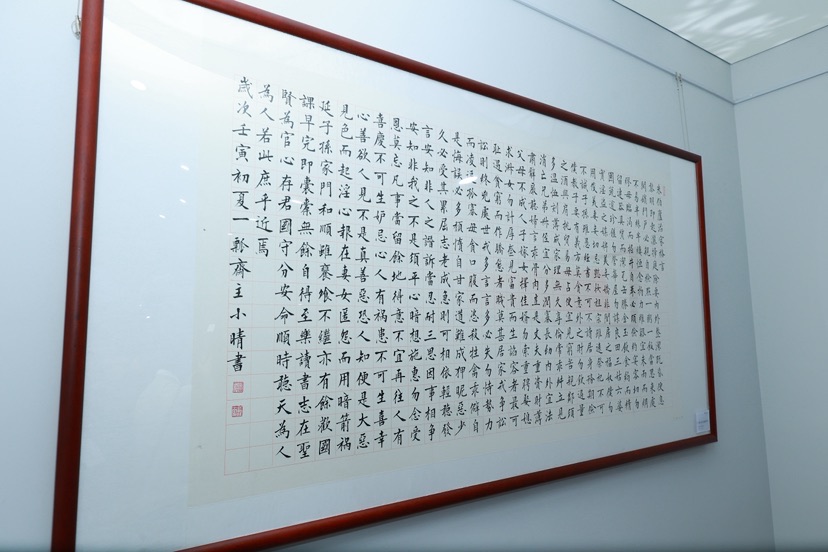 朱伯廬治家格言
黎明即起灑掃庭除要內外整潔既昏便息
關鎖門戶必親自檢點一粥一飯當思來處
不易半絲半縷恆念物力維艱宜未雨而綢
繆毋臨渴而掘井自奉必須儉約宴客切勿
留連器具質而潔瓦缶勝金玉飲食約而精
園蔬逾珍饈勿營華屋勿謀良田三姑六婆
實淫盜之媒婢美妾嬌非閨房之福奴僕勿
用俊美妻妾切忌艷妝祖宗雖遠祭祀不可
不誠子孫雖愚經書不可不讀居身務期儉
樸教子要有義方勿貪意外之財勿飲過量
之酒與肩挑貿易毋占便宜見窮苦親鄰須
多溫恤刻薄成家理無久享倫常乖舛立見
消亡兄弟叔侄宜分多潤寡長幼內外宜法
肅辭嚴聽婦言乖骨肉豈是丈夫重資財薄
父母不成人子嫁女擇佳婿勿索重聘娶媳
求淑女勿計厚奩見富貴而生諂容者最可
恥遇貧窮而作驕態者賤莫甚居家戒爭訟
訟則終凶處世戒多言言多必失勿恃勢力
而凌逼孤寡毋貪口腹而恣殺牲禽乖僻自
是悔誤必多頹惰自甘家道難成狎昵惡少
久必受其累屈志老成急則可相依輕聽發
言安知非人之譖訴當忍耐三思因事相爭
安知非我之不是須平心暗想施惠勿念受
恩莫忘凡事當留餘地得意不宜再往人有
喜慶不可生妒忌心人有禍患不可生喜幸
心善欲人見不是真善惡恐人知便是大惡
見色而起淫心報在妻女匿怨而用暗箭禍
延子孫家門和順雖饔飧不繼亦有餘歡國
課早完即囊橐無餘自得至樂讀書志在聖
賢為官心存君國守分安命順時聽天為人
為人若此庶乎近焉
歲次壬寅初夏一瓢齋主小晴書